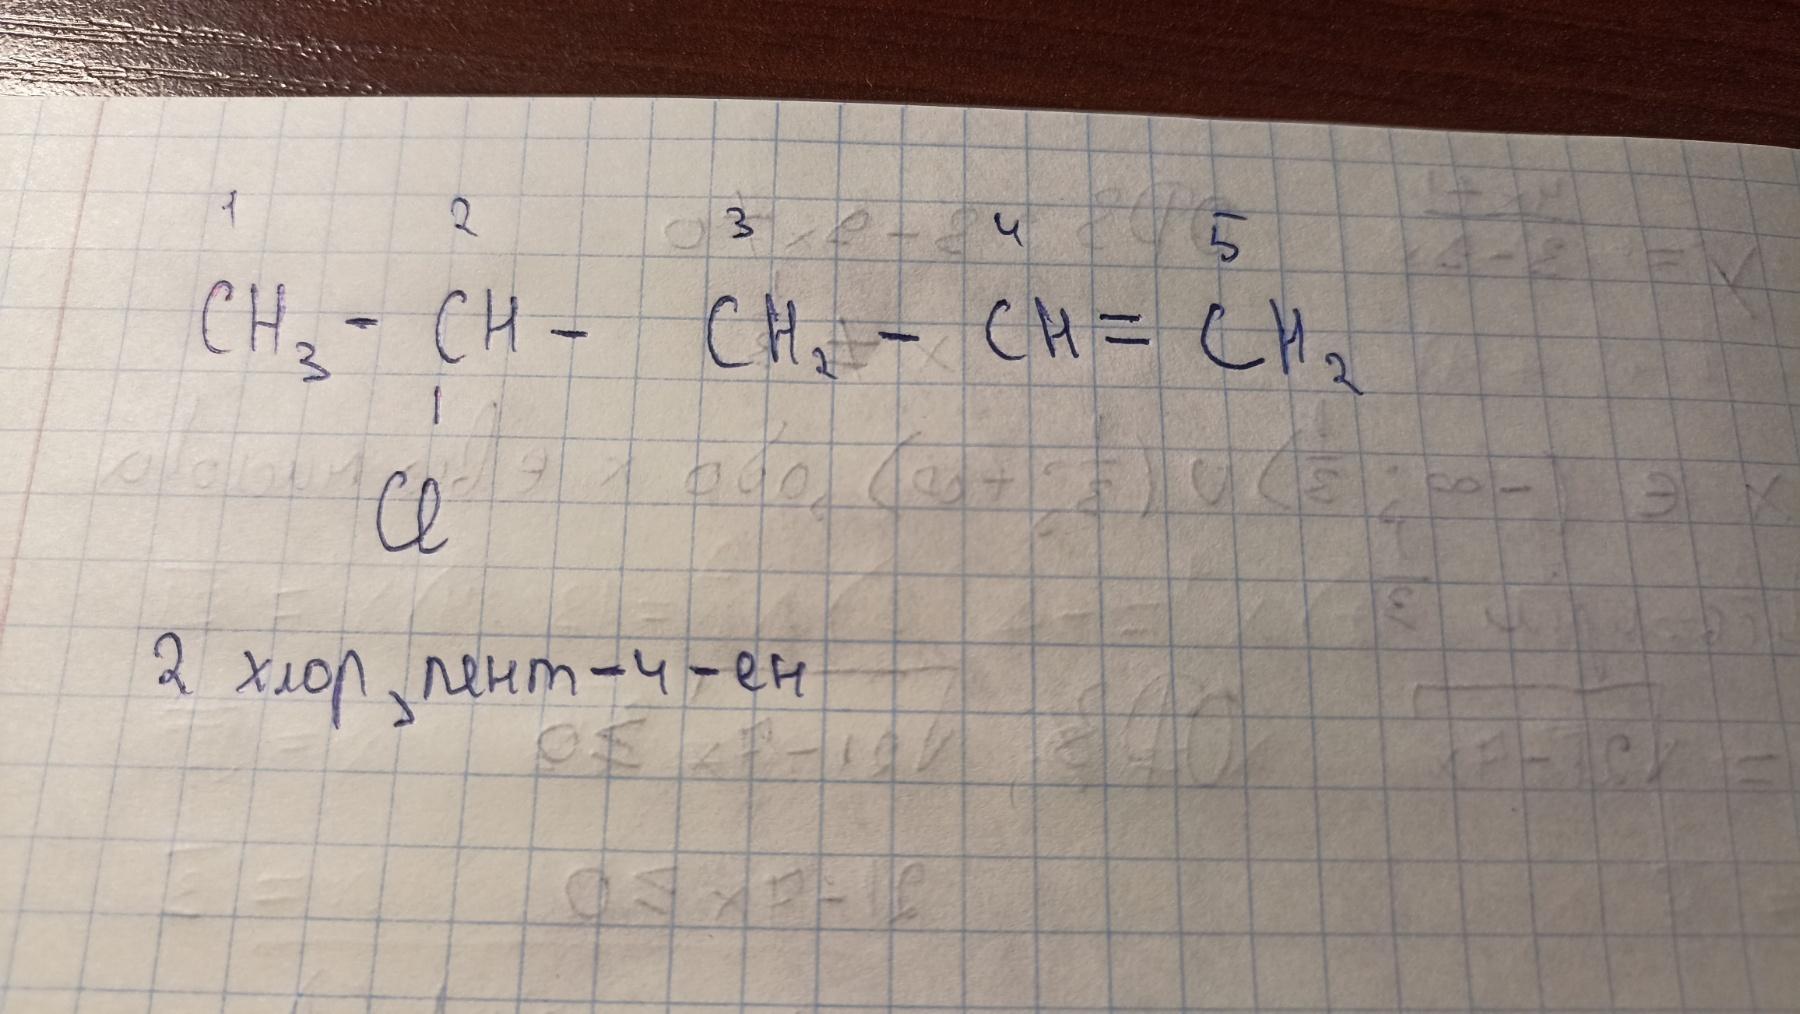 1 2 3 4 5
CH₃ - CH - CH₂ - CH = CH₂
Cl
2 хлор, пент-4-ен